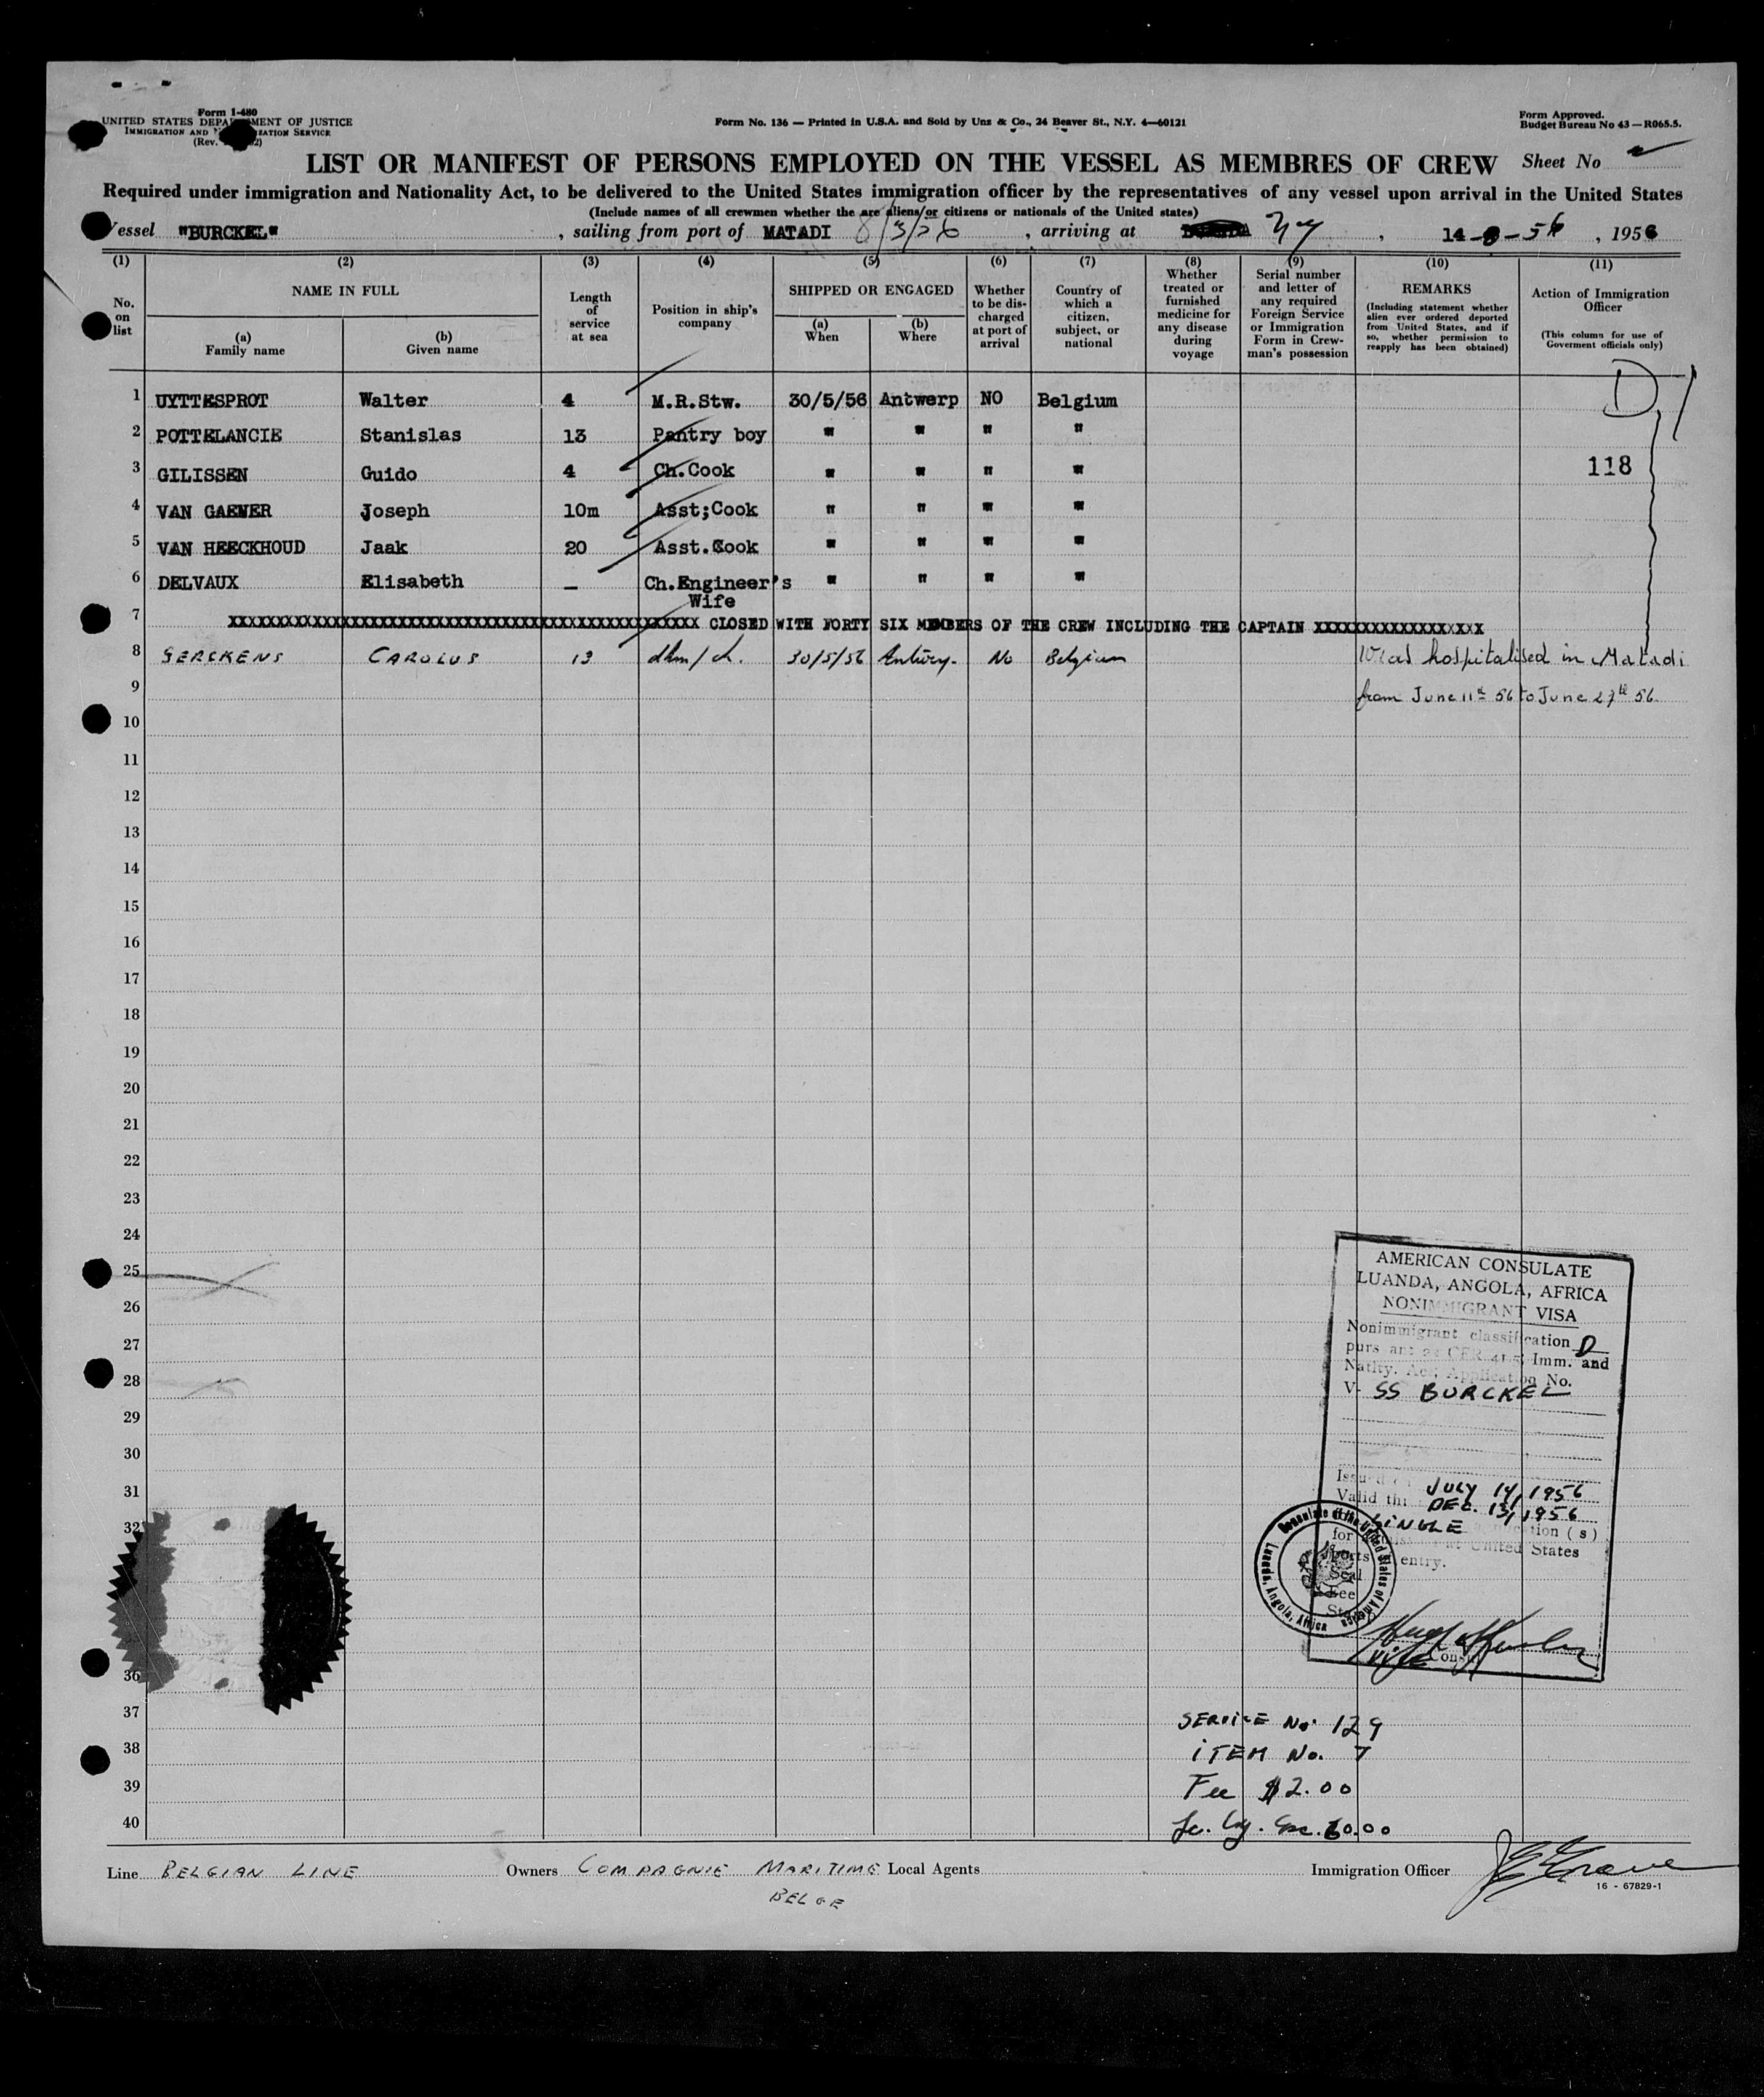 Form I-480
UNITED STATES DEPA MENT OF JUSTICE
IMMIGRATION AND N ZATION SERVICE
(Rev. 2)
Form No. 136 — Printed in U.S.A. and Sold by Unz & Co., 24 Beaver St., N.Y. 4—60121
Form Approved.
Budget Bureau No 43 — R065.5.
LIST OR MANIFEST OF PERSONS EMPLOYED ON THE VESSEL AS MEMBRES OF CREW Sheet No
Required under immigration and Nationality Act, to be delivered to the United States immigration officer by the representatives of any vessel upon arrival in the United States
(Include names of all crewmen whether the are aliens/or citizens or nationals of the United states)
Vessel "BURCKEL" , sailing from port of MATADI , arriving at NY , 14-8-56 , 1956
(1) (2) (3) (4) (5) (6) (7) (8) (9) (10) (11)
No. on list
NAME IN FULL
(a) Family name
(b) Given name
Length of service at sea
Position in ship's company
SHIPPED OR ENGAGED
(a) When
(b) Where
Whether to be discharged at port of arrival
Country of which a citizen, subject, or national
Whether treated or furnished medicine for any disease during voyage
Serial number and letter of any required Foreign Service or Immigration Form in Crewman's possession
REMARKS
(Including statement whether alien ever ordered deported from United States, and if so, whether permission to reapply has been obtained)
Action of Immigration Officer
(This column for use of Goverment officials only)
1 UYTTESPROT Walter 4 M.R.Stw. 30/5/56 Antwerp NO Belgium D
2 POTTELANCIE Stanislas 13 Pantry boy " " " "
3 GILISSEN Guido 4 Ch.Cook " " " " 118
4 VAN GAEVER Joseph 10m Asst;Cook " " " "
5 VAN HEECKHOUD Jaak 20 Asst.Cook " " " "
6 DELVAUX Elisabeth — Ch.Engineer's " " " "
Wife
7 XXXXXXXXXXXXXXXXXXXXXXXXXXXXXXXXXXXXXXXXXXXXXXX CLOSED WITH FORTY SIX MEMBERS OF THE CREW INCLUDING THE CAPTAIN XXXXXXXXXXXXXXXXX
8 GERCKENS CAROLUS 13 30/5/56 Antwerp. No Belgium Was hospitalised in Matadi
9 from June 11th 56 to June 27th 56.
10
11
12
13
14
15
16
17
18
19
20
21
22
23
24
25
26
27
28
29
30
31
32
36
37
38
39
40
AMERICAN CONSULATE
LUANDA, ANGOLA, AFRICA
NONIMMIGRANT VISA
Nonimmigrant classification D
Imm. and
Natlty. Act, Application No.
V- SS BURCKEL
JULY 14, 1956
Valid DEC. 13, 1956
SINGLE application (s)
for at United States
ports entry.
Seal
Fee
Consulate of the United States of America
Luanda, Angola, Africa
Vice Consul
SERVICE No. 129
ITEM No. 7
Fee $2.00
60.00
Line BELGIAN LINE Owners COMPAGNIE MARITIME Local Agents Immigration Officer
BELGE
16 - 67829-1